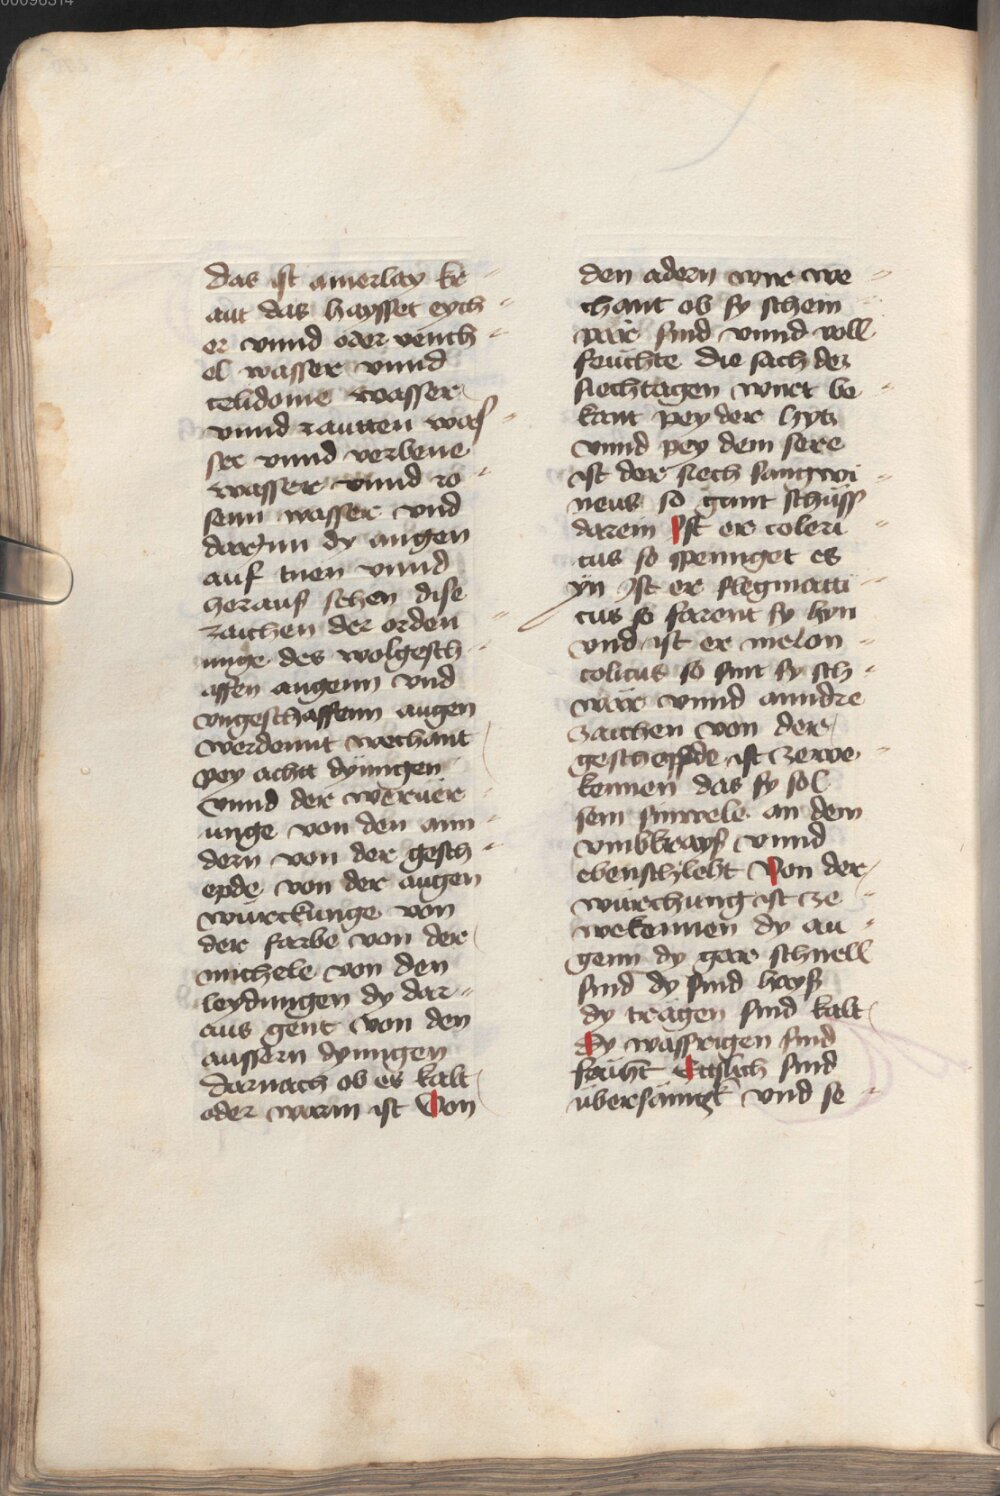 00096314
das ist ainerlay kr
aut das haysset eych
er vnnd oder vench
el wasser vnnd
celidonie wasser
vnnd rautten was
ser vnnd verbene
wasser vnnd ro
senn wasser vnd
darynn dy augen
auf tuen vnnd
herauß sehen dise
zaichen der orden
unge des wolgesch
affen augenn vnd
vngeschaffenn augen
werdennt wechant
pey acht dynngen
vnnd der weruer
unge von den ann
dern von der gesch
epde von der augen
würckunge von
der farbe von der
michele von den
leydungen dy dar
aus gent von den
aussern dynngen
darnach ob es kalt
oder warm ist Von
den adern wir we
chant ob sy schein
pär sind vnnd voll
feüchte die sach der
siechtagen wirt be
kant pey der hytz
vnnd pey dem sere
ist der siech sangwi
neus so gant schüss
darein Ist er coleri
cus so spennget es
yn Ist er flegmatti
cus so farent sy hyn
vnd ist er melon
colicus so sint sy sch
wär vnnd anndre
zaichen von der
geschepfde ist zerwe
kennen das sy sol
sein sinwele an dem
vmbkrayß vnnd
ebenschleht Von der
würchung ist ze
wekennen dy au
genn dy gar schnell
sind dy sind hayß
dy trägen sind kalt
Dy wassrigen sind
feücht Ettslich sind
übersainigk vnd se